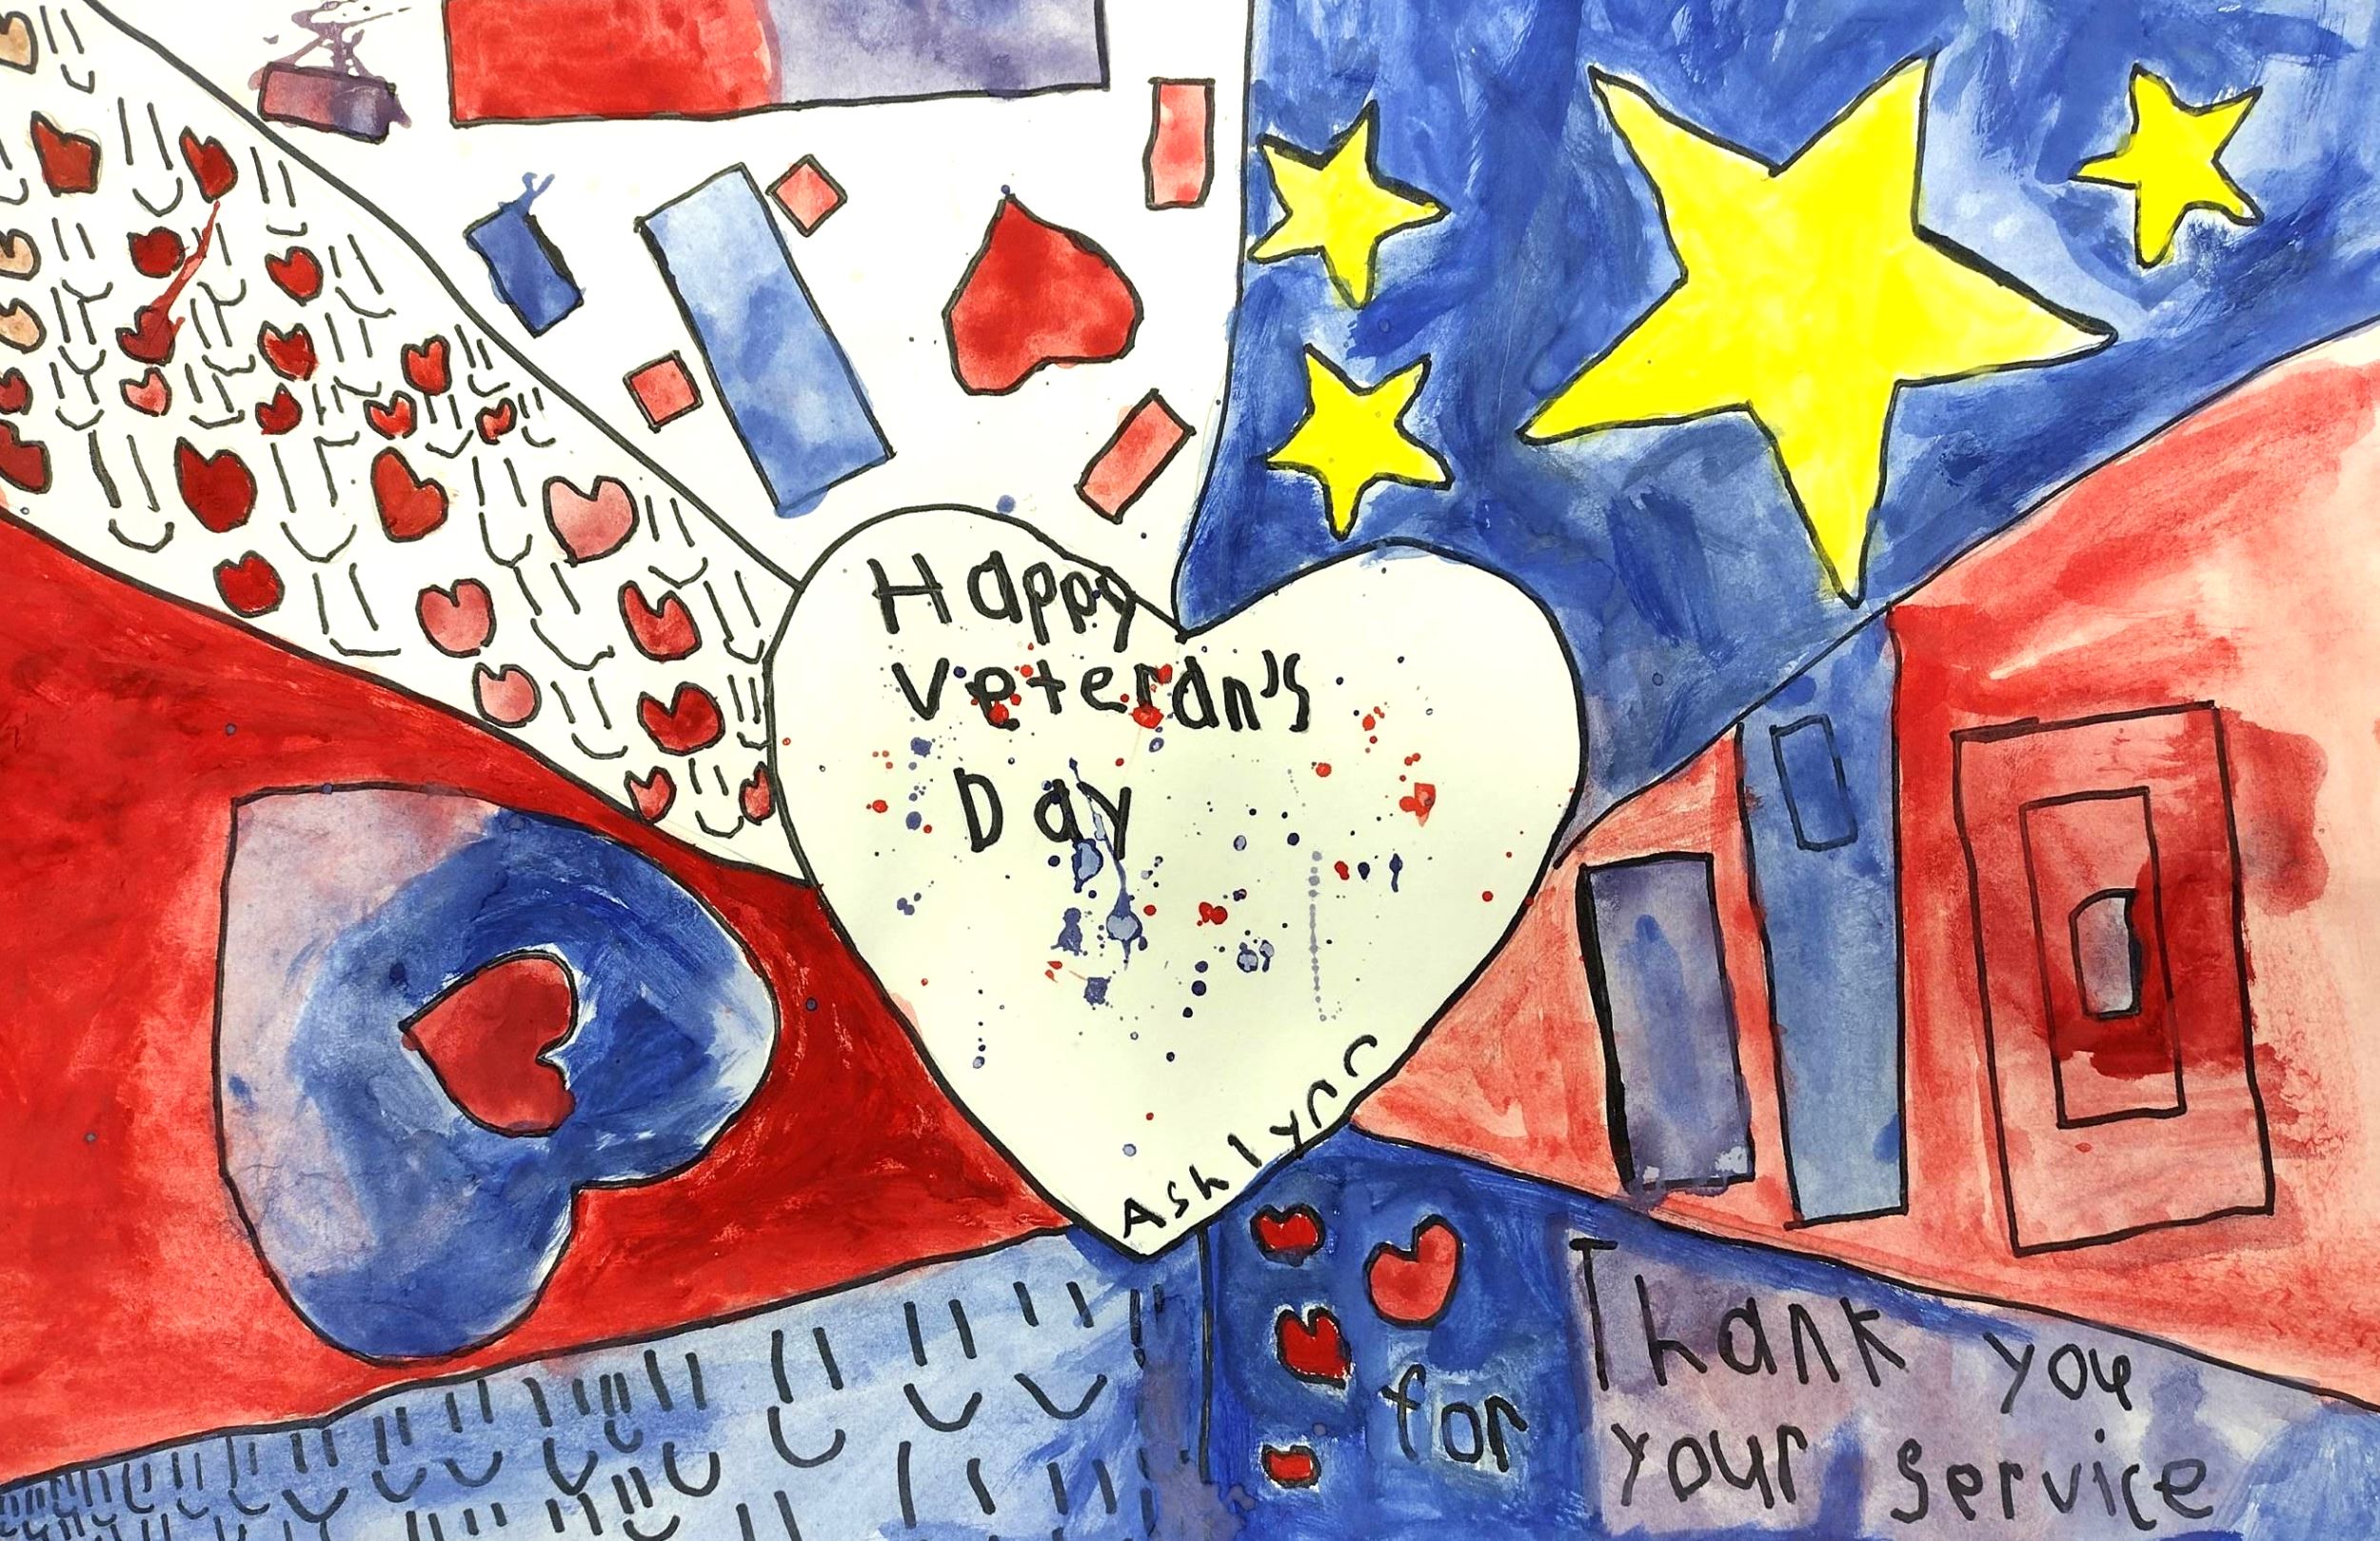 Happy
Veteran's
Day
Ashlynn
Thank you
for your service